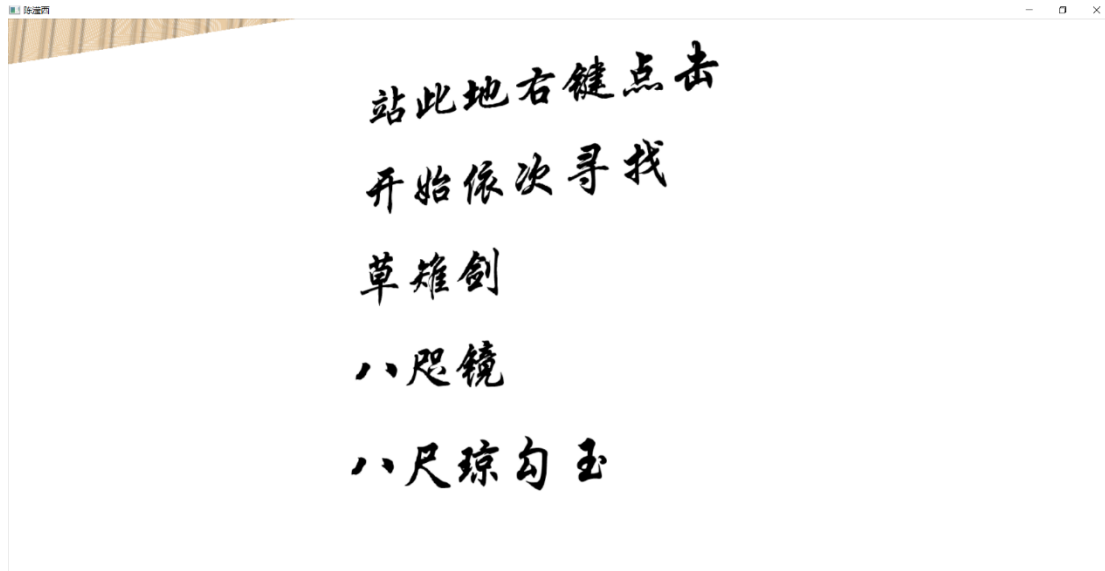 陈滢西
站此地右键点击
开始依次寻找
草雉剑
八咫镜
八尺琼勾玉